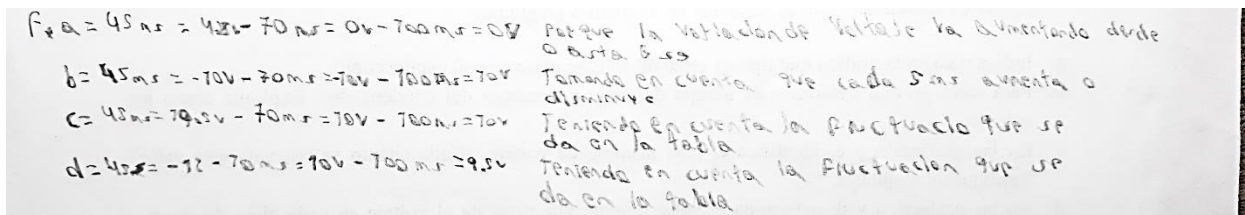 a = 45 ms = - 70 ms = 0v - 700 ms = 0V porque la variacion de voltaje va aumentando desde
0 asta
b = 45ms = -10v - 70ms = -10v - = 70v Tomando en cuenta que cada 5 ms aumenta o
disminuye
c = 45ms = - 70ms = 70v - = 70v Teniendo en cuenta la que se
da en la tabla
d = = -12 - 70ms = 10v - 700 ms = 9.5v Teniendo en cuenta la fluctuacion que se
da en la tabla